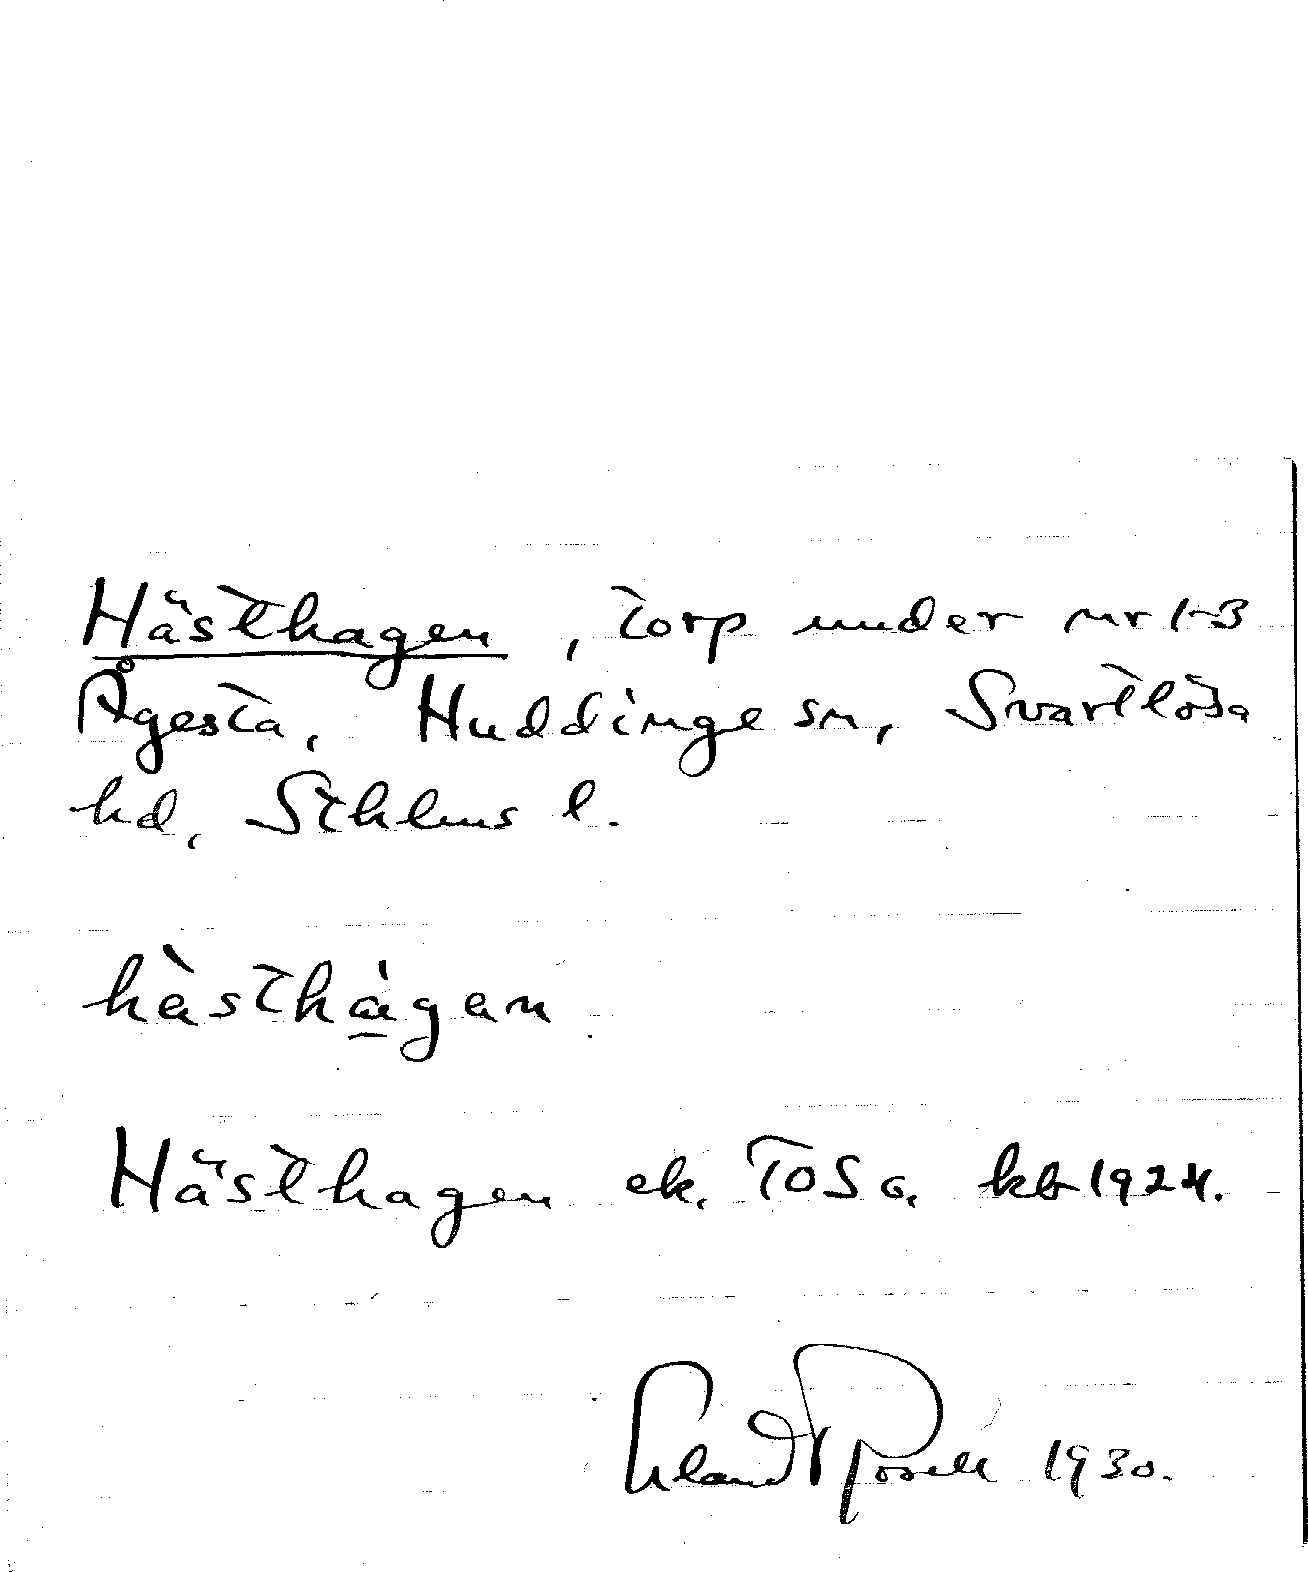 Hästhagen, torp under nr 1-3
Ågesta, Huddinge sn, Svartlösa
hd, Sthlms l.
hàsthàgen
Hästhagen ek. TOSG. kb 1924.
Erland Rosell 1930.